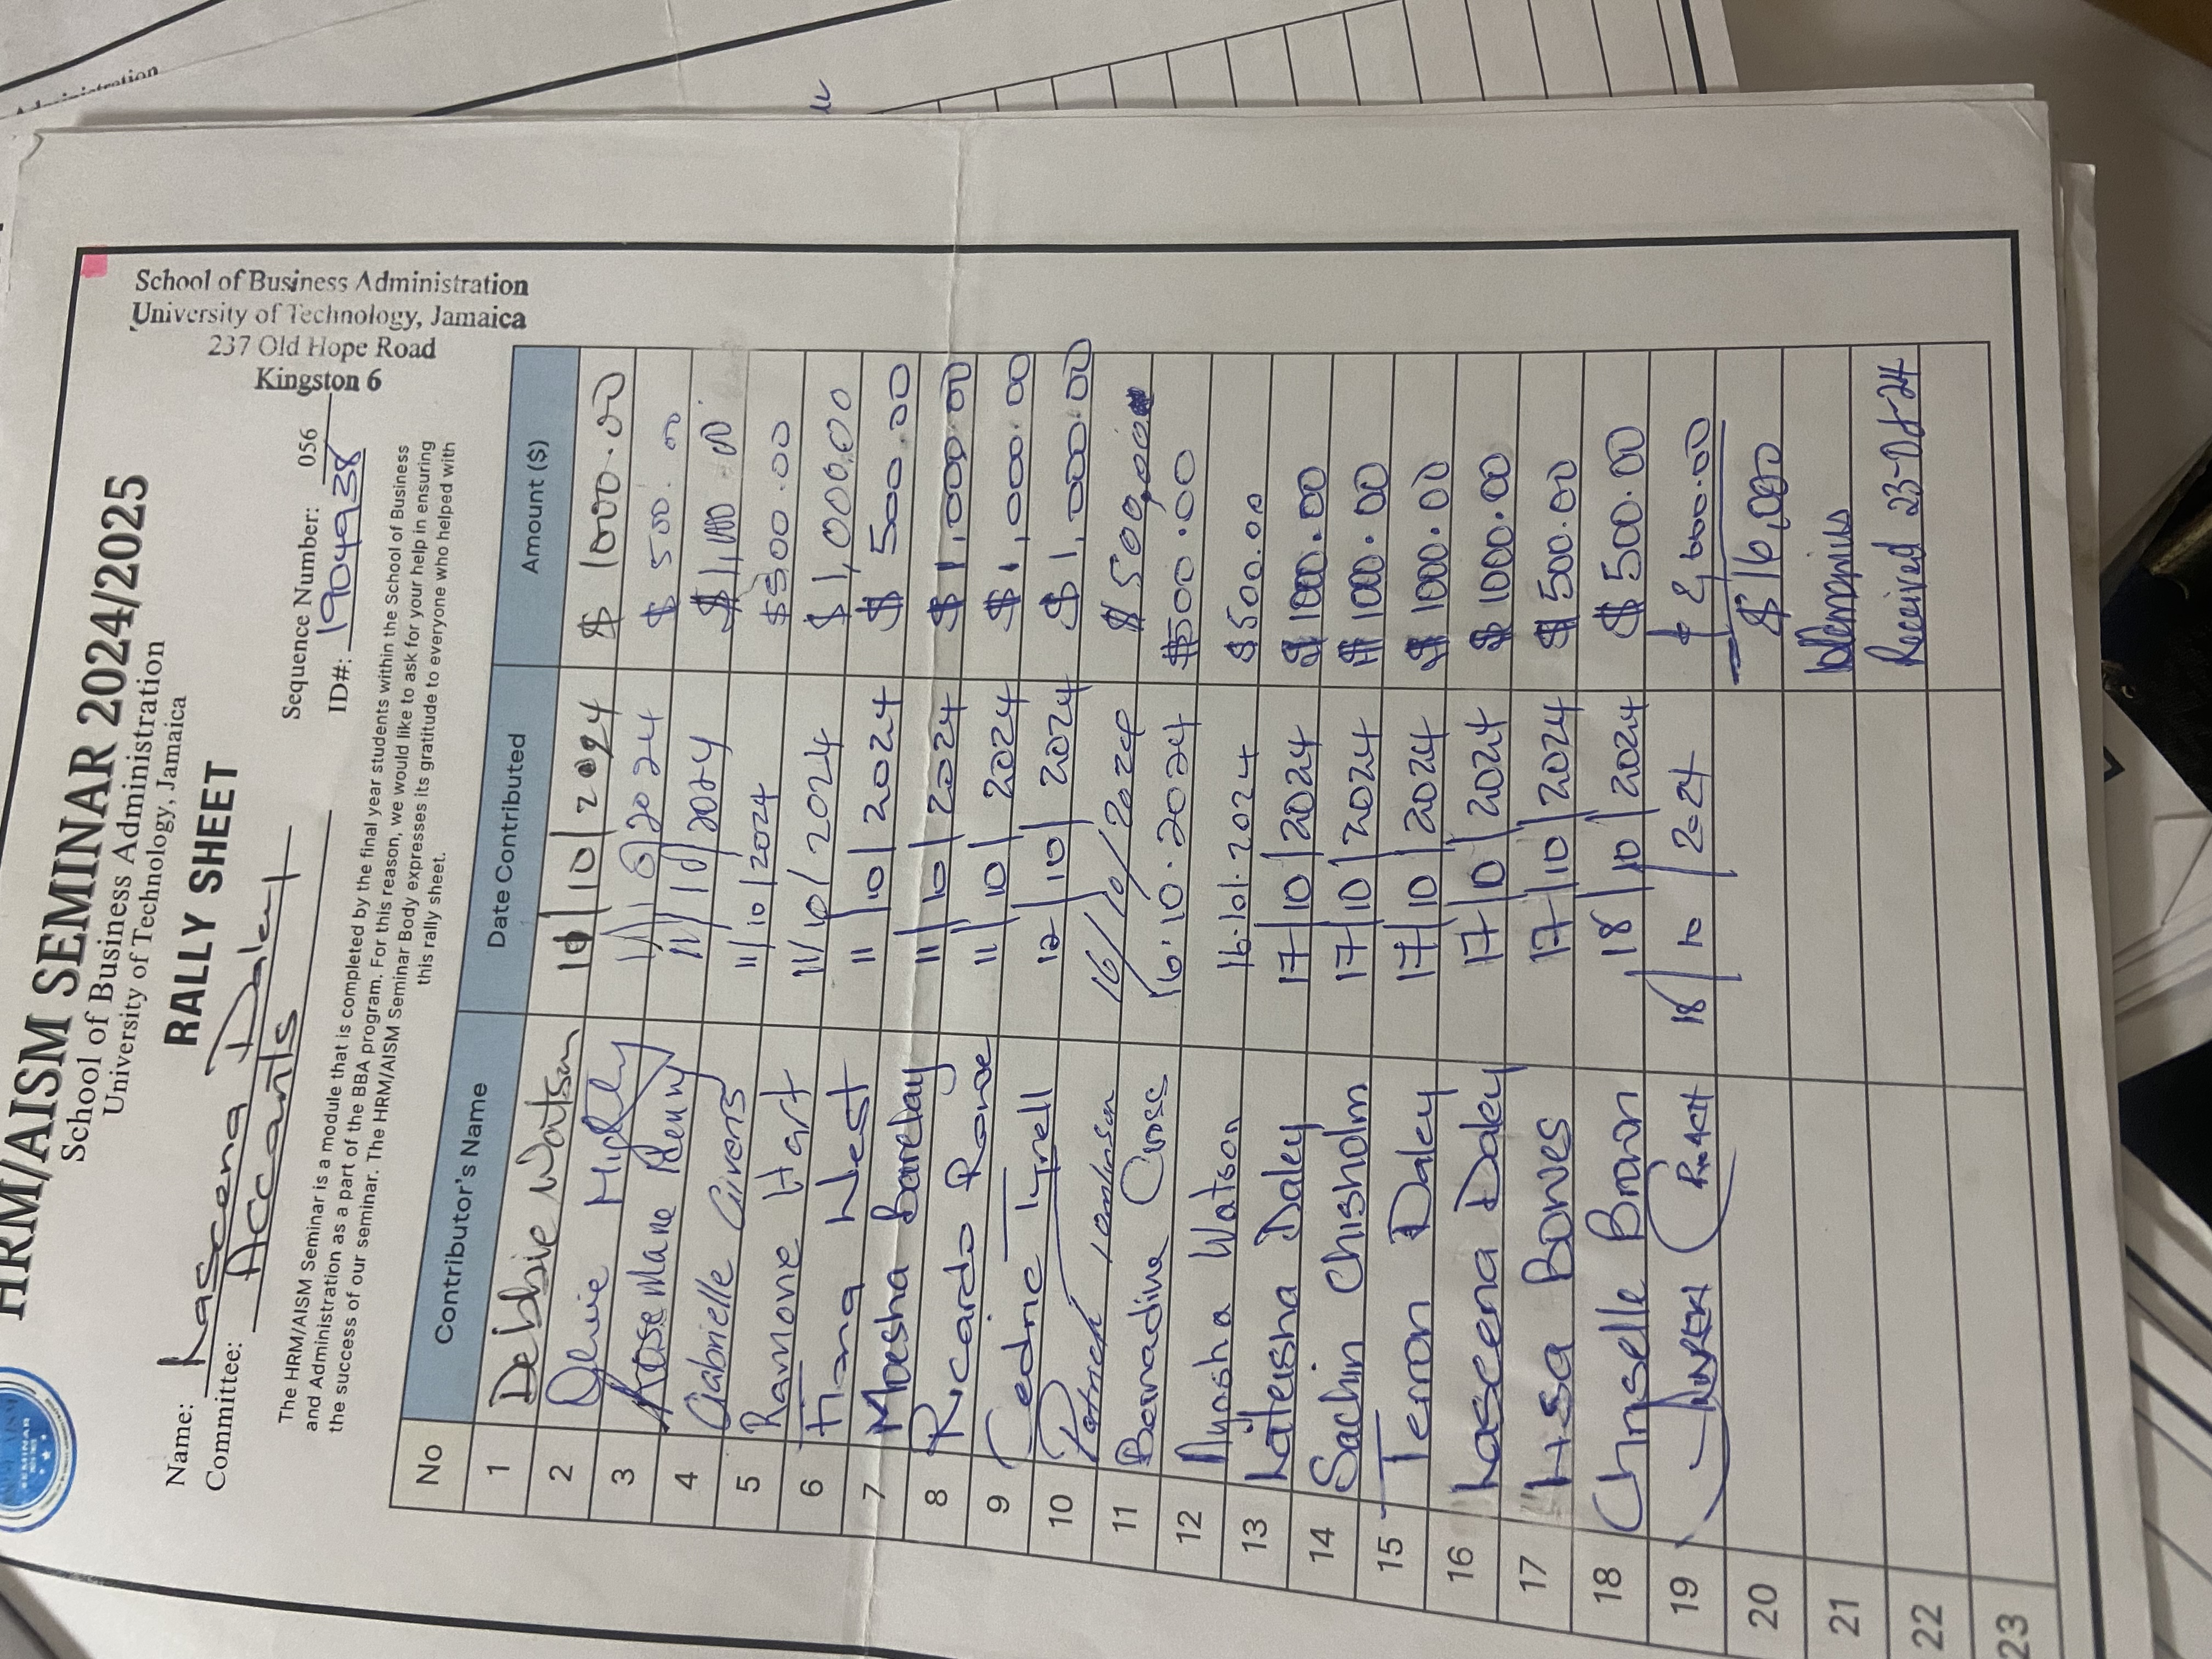 SEMINAR
HRM/AISM SEMINAR 2024/2025
School of Business Administration
University of Technology, Jamaica
RALLY SHEET
Name: Kaseena Daley
Committee: Accants
Sequence Number: 056
ID#: 1904938
School of Business Administration
University of Technology, Jamaica
237 Old Hope Road
Kingston 6
The HRM/AISM Seminar is a module that is completed by the final year students within the School of Business
and Administration as a part of the BBA program. For this reason, we would like to ask for your help in ensuring
the success of our seminar. The HRM/AISM Seminar Body expresses its gratitude to everyone who helped with
this rally sheet.
No Contributor's Name Date Contributed Amount ($)
1 Debbie Watson 10/10/2024 $ 1000.00
2 Olivie 11/10/2024 $ 500.00
3 RoseMarie 11/10/2024 $1,000.00
4 Gabrielle Givens 11/10/2024 $500.00
5 Ramone Hart 11/10/2024 $1,000.00
6 Fiona West 11/10/2024 $ 500.00
7 Moesha Barclay 11/10/2024 $1,000.00
8 Ricardo Rowe 11/10/2024 $1,000.00
9 Cedric Tyrell 12/10/2024 $1,000.00
10 Patrick Tomlinson 16/10/2024 $500.00
11 Bernadine Cross 16.10.2024 $500.00
12 Nyasha Watson 16.10.2024 $500.00
13 Kateisha Daley 17/10/2024 $1000.00
14 Sachin Chisholm 17/10/2024 $1000.00
15 Terron Daley 17/10/2024 $1000.00
16 Kaseena Daley 17/10/2024 $1000.00
17 Lisa Bowes 17/10/2024 $500.00
18 Chryselle Brown 18/10/2024 $500.00
19 18/10/2024 $2,000.00
20 $16,000
21
22 Received 23-Oct-24
23